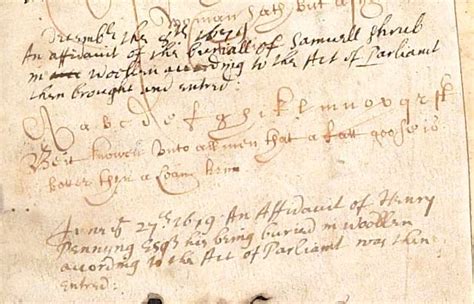 Woman hath but a
Desember the 8th 1679
An affidavit of the buriall of Samuell Shrub
in woollen according to the Act of Parliamt
then brought and entred:
A a b c d e f g h i k l m n o v q r s k
Be it knowen unto all men that a fatt goose is
bater then a henn
June ye 27th 1679 An Affidavit of Henry
Pennyng Esqr his being buried in Woollen
according to the Act of Parliamt was then
entred: